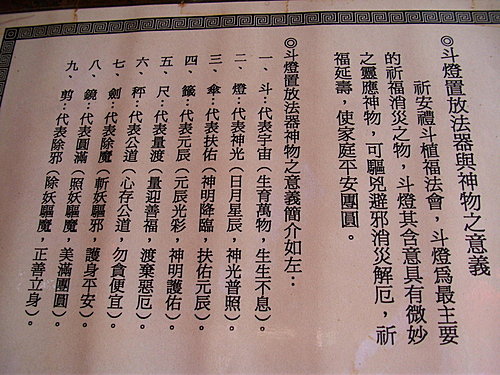 ◎斗燈置放法器與神物之意義
祈安禮斗植福法會，斗燈為最主要
的祈福消災之物，斗燈其含意具有微妙
之靈應神物，可驅兇避邪消災解厄，祈
福延壽，使家庭平安團圓。
◎斗燈置放法器神物之意義簡介如左：
一、斗：代表宇宙（生育萬物，生生不息）。
二、燈：代表神光（日月星辰，神光普照）。
三、傘：代表扶佑（神明降臨，扶佑元辰）。
四、籤：代表元辰（元辰光彩，神明護佑）。
五、尺：代表量渡（量迎善福，渡棄惡厄）。
六、秤：代表公道（心存公道，勿貪便宜）。
七、劍：代表除魔（斬妖驅邪，護身平安）。
八、鏡：代表圓滿（照妖驅魔，美滿團圓）。
九、剪：代表除邪（除妖驅魔，正善立身）。